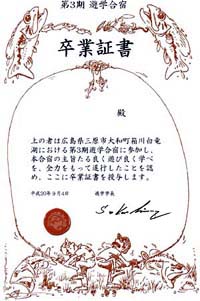 第3期 遊学合宿
卒業証書
殿
上の者は広島県三原市大和町箱川白竜
湖における第3期遊学合宿に参加し、
本合宿の主旨たる良く遊び良く学べ
を、全力をもって遂行したことを認
め、ここに卒業証書を授与します。
平成20年9月4日 遊学学長